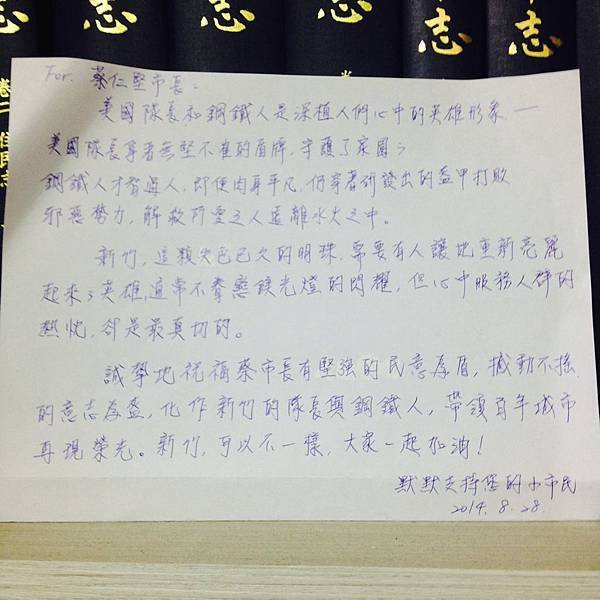 志
志
志
志
卷二 住民志
For. 蔡仁堅市長：
美國隊長和鋼鐵人是深植人們心中的英雄形象—
美國隊長拿著無堅不摧的盾牌，守護了家園；
鋼鐵人才智過人，即便肉身平凡，仍穿著研發出的盔甲打敗
邪惡勢力，解救所愛之人遠離水火之中。
新竹，這顆失色已久的明珠，需要有人讓她重新亮麗
起來；英雄，通常不眷戀鎂光燈的閃耀，但心中服務人群的
熱忱，卻是最真切的。
誠摯地祝福蔡市長有堅強的民意為盾，撼動不搖
的意志為盔，化作新竹的隊長與鋼鐵人，帶領百年城市
再現榮光。新竹，可以不一樣，大家一起加油！
默默支持您的小市民
2014. 8. 28.